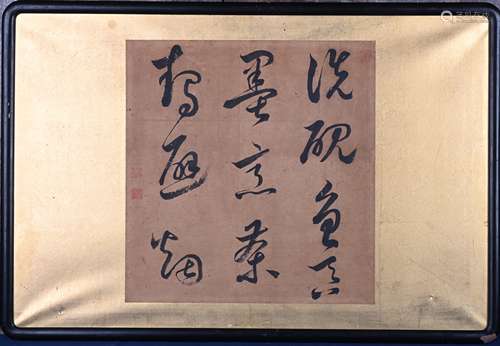 洗硯魚吞
墨烹茶
鶴避烟